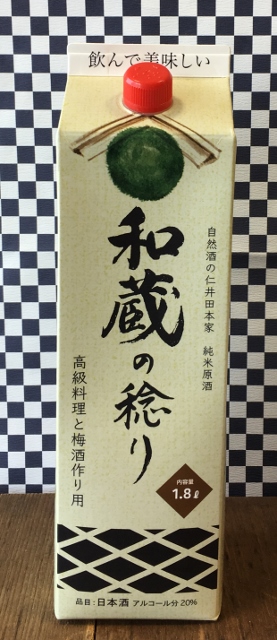 飲んで美味しい
自然酒の仁井田本家 純米原酒
和蔵の稔り
高級料理と梅酒作り用
内容量
1.8ℓ
品目：日本酒 アルコール分20%